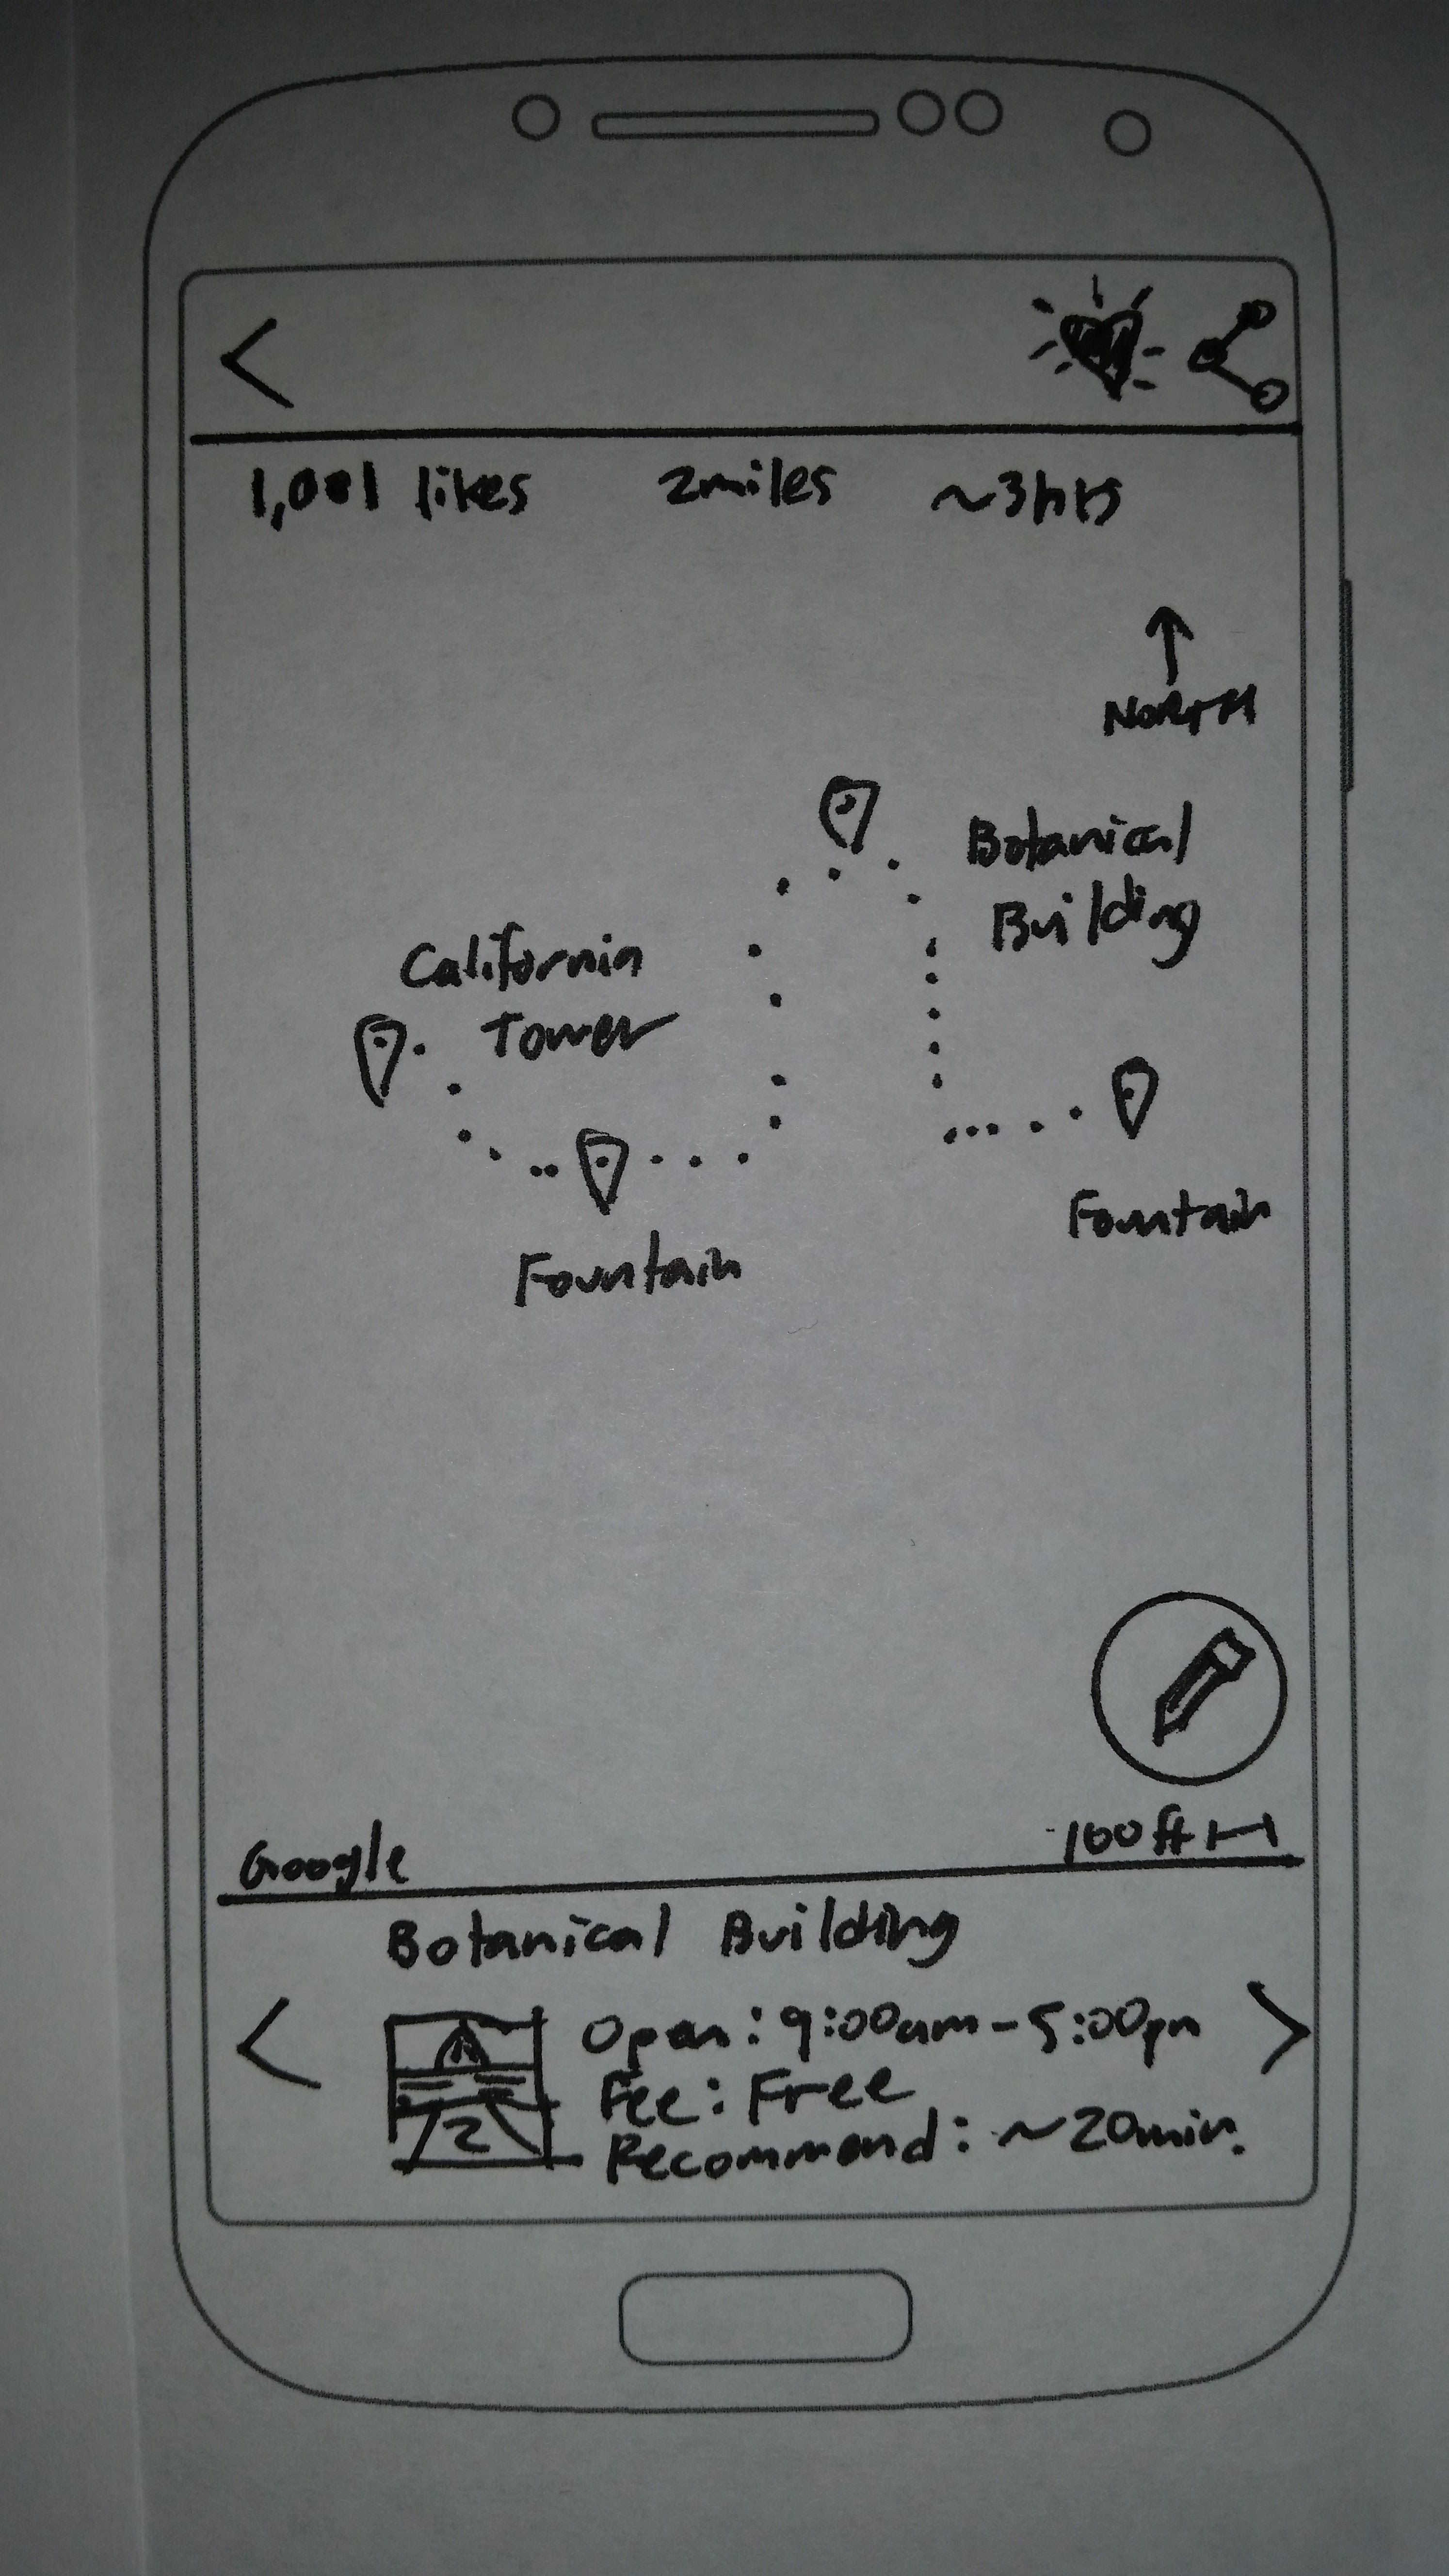 1,001 likes 2miles ~3hrs
NORTH
Botanical
Building
California
Tower
Fountain
Fountain
Google 100ft
Botanical Building
Open: 9:00am-5:00pm
Fee: Free
Recommend: ~20min.